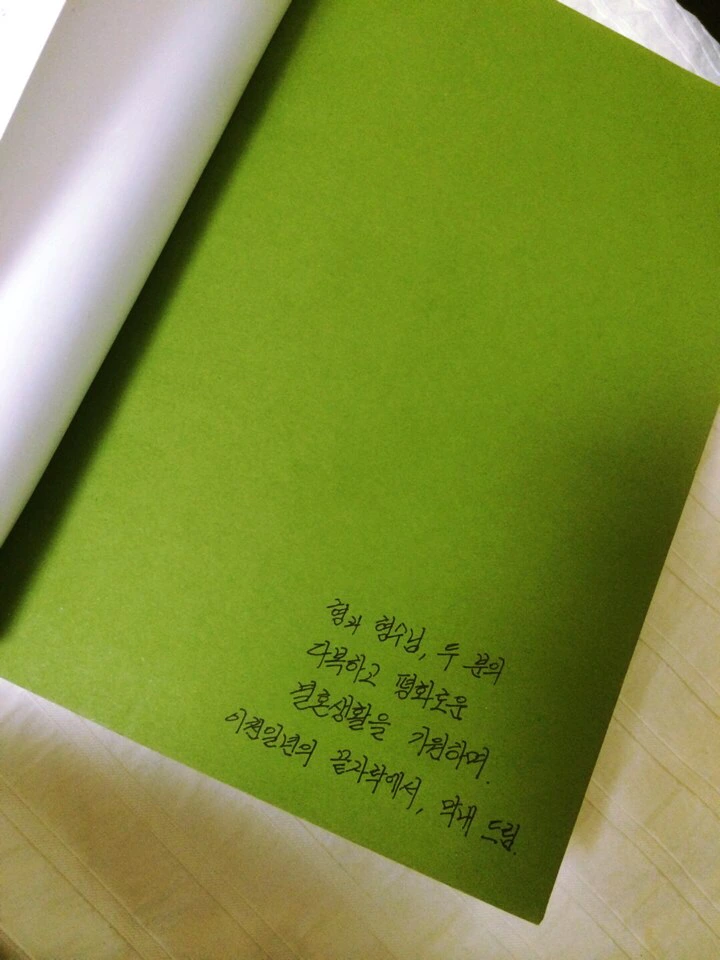 형과 형수님, 두 분의
다복하고 평화로운
결혼생활을 기원하며.
이천일년의 끝자락에서, 막내 드림.